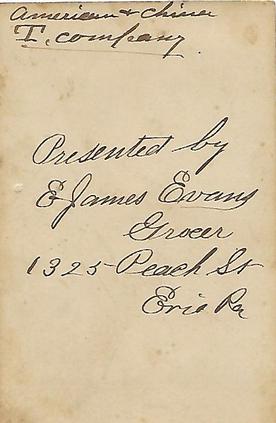 American & China
T. company
Presented by
E James Evans
Grocer
1325 Peach St
Erie Pa